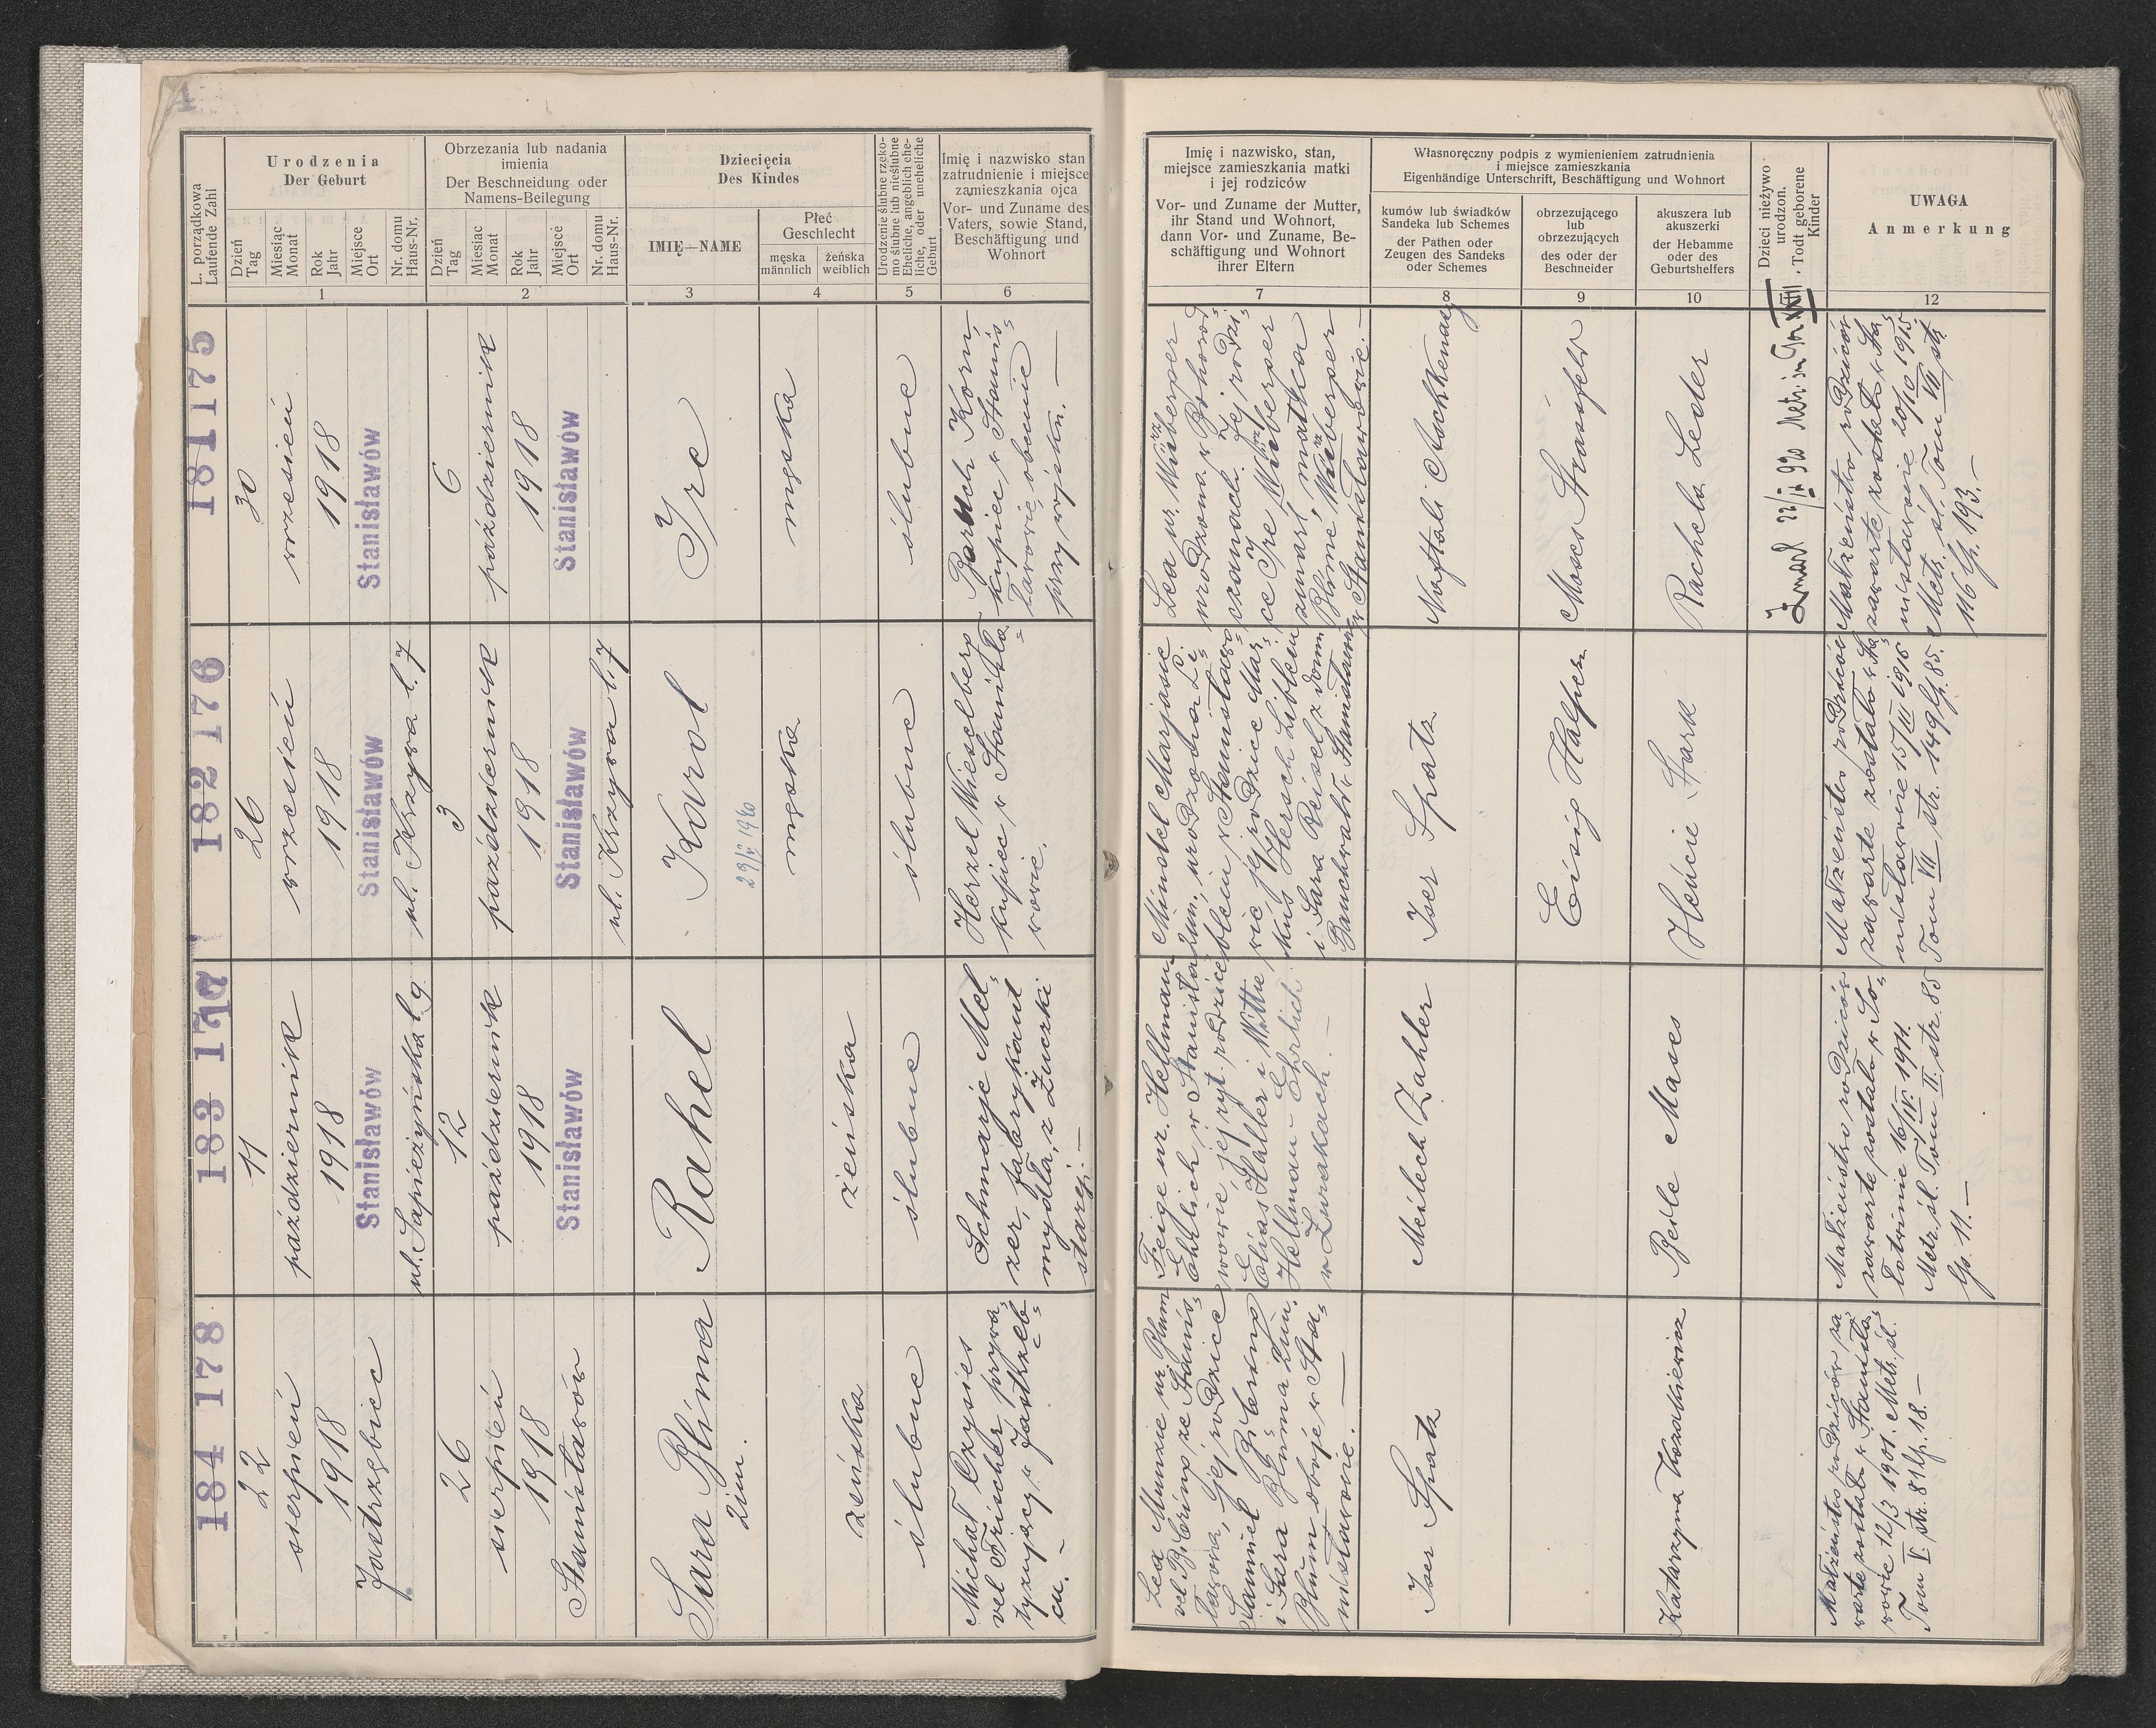 L. porządkowa
Laufende Zahl
Urodzenia
Der Geburt
Dzień
Tag
Miesiąc
Monat
Rok
Jahr
Miejsce
Ort
Nr. domu
Haus-Nr.
1
Obrzezania lub nadania
imienia
Der Beschneidung oder
Namens-Beilegung
Dzień
Tag
Miesiac
Monat
Rok
Jahr
Miejsce
Ort
Nr. domu
Haus-Nr.
2
Dziecięcia
Des Kindes
IMIĘ—NAME
3
Płeć
Geschlecht
męska
männlich
żeńska
weiblich
4
Urodzenie ślubne rzeko-
mo ślubne lub nieślubne
Eheliche, angeblich ehe-
liche, oder uneheliche
Geburt
5
Imię i nazwisko stan
zatrudnienie i miejsce
zamieszkania ojca
Vor- und Zuname des
Vaters, sowie Stand,
Beschäftigung und
Wohnort
6
Imię i nazwisko, stan,
miejsce zamieszkania matki
i jej rodziców
Vor- und Zuname der Mutter,
ihr Stand und Wohnort,
dann Vor- und Zuname, Be-
schäftigung und Wohnort
ihrer Eltern
7
Własnoręczny podpis z wymienieniem zatrudnienia
i miejsce zamieszkania
Eigenhändige Unterschrift, Beschäftigung und Wohnort
kumów lub świadków
Sandeka lub Schemes
der Pathen oder
Zeugen des Sandeks
oder Schemes
8
obrzezującego
lub
obrzezujących
des oder der
Beschneider
9
akuszera lub
akuszerki
der Hebamme
oder des
Geburtshelfers
10
Dzieci nieżywo
urodzon.
Todt geborene
Kinder
UWAGA
Anmerkung
12
181 175
30
wrzesień
1918
Stanisławów
6
październik
1918
Stanisławów
Ire
męska
ślubne
Baruch Korn,
kupiec w Stanis-
ławowie obecnie
przy wojsku. —
Lea ur.
urodzona w Bohorod-
czanach. Jej rodzi-
ce Ire
zmarł, matka
Blime
w Stanisławowie. —
Naftali Aschkenasy
Moses
Rachela Leder
Zmarł
Małżeństwo rodziców
zawarte zostało w Sta-
nisławowie 20/10 1915
Metr. śl. Tom VII str.
116 lp. 193. —
182 176
26
wrzesień
1918
Stanisławów
ul. Krzywa l. 7
3
październik
1918
Stanisławów
ul. Krzywa l. 7
Karol
męska
ślubne
Herzel Wieselberg
kupiec w Stanisła-
wowie.
Mindel Marjasie
2im. urodzona Li-
blein w Stanisławo-
wie jej rodzice Mar-
kus Hersch Liblein
i Sara Reisel z domu
w Stanisławowie
Iser Spatz
Eisig Halpern
Heńcie Stark
Małżeństwo rodziców
zawarte zostało w Sta-
nisławowie 15/III 1916
Tom VII str. 149 lp. 85.
183 177
11
październik
1918
Stanisławów
ul. Sapieżyńska l. 9
12
październik
1918
Stanisławów
Rahel
żeńska
ślubne
Schmarje Mel-
zer, fabrykant
mydła, z Żuczki
starej. —
Feige ur. Hellman
Ehrlich, w Stanisła-
wowie, jej ryt. rodzice
Elias Haller i Mittie
Hellman - Ehrlich
w Żurakach. —
Meilech Zahler
Beile Mases
Małżeństwo rodziców
zawarte zostało w So-
łotwinie 16/IV. 1911.
Metr. śl. Tom II. str. 85
lp. 11. —
184 178
22
sierpień
1918
Jastrzębiec
26
sierpień
1918
Stanisławów
Sara Blima
2im.
żeńska
ślubne
Michał Czysies
vel Frischer prywa-
tyzujący w Jastrzęb-
cu. —
Lea Munzie ur. Blum
vel Bibring ze Stanis-
ławowa, jej rodzice
Samuel Bibring
i Sara Blima 2im.
Blum oboje w Sta-
nisławowie. —
Iser Spatz
Katarzyna
Małżeństwo rodziców za
warte zostało w Stanisła-
wowie 12/3 1901. Metr. śl.
Tom V. str. 81 lp. 18. —